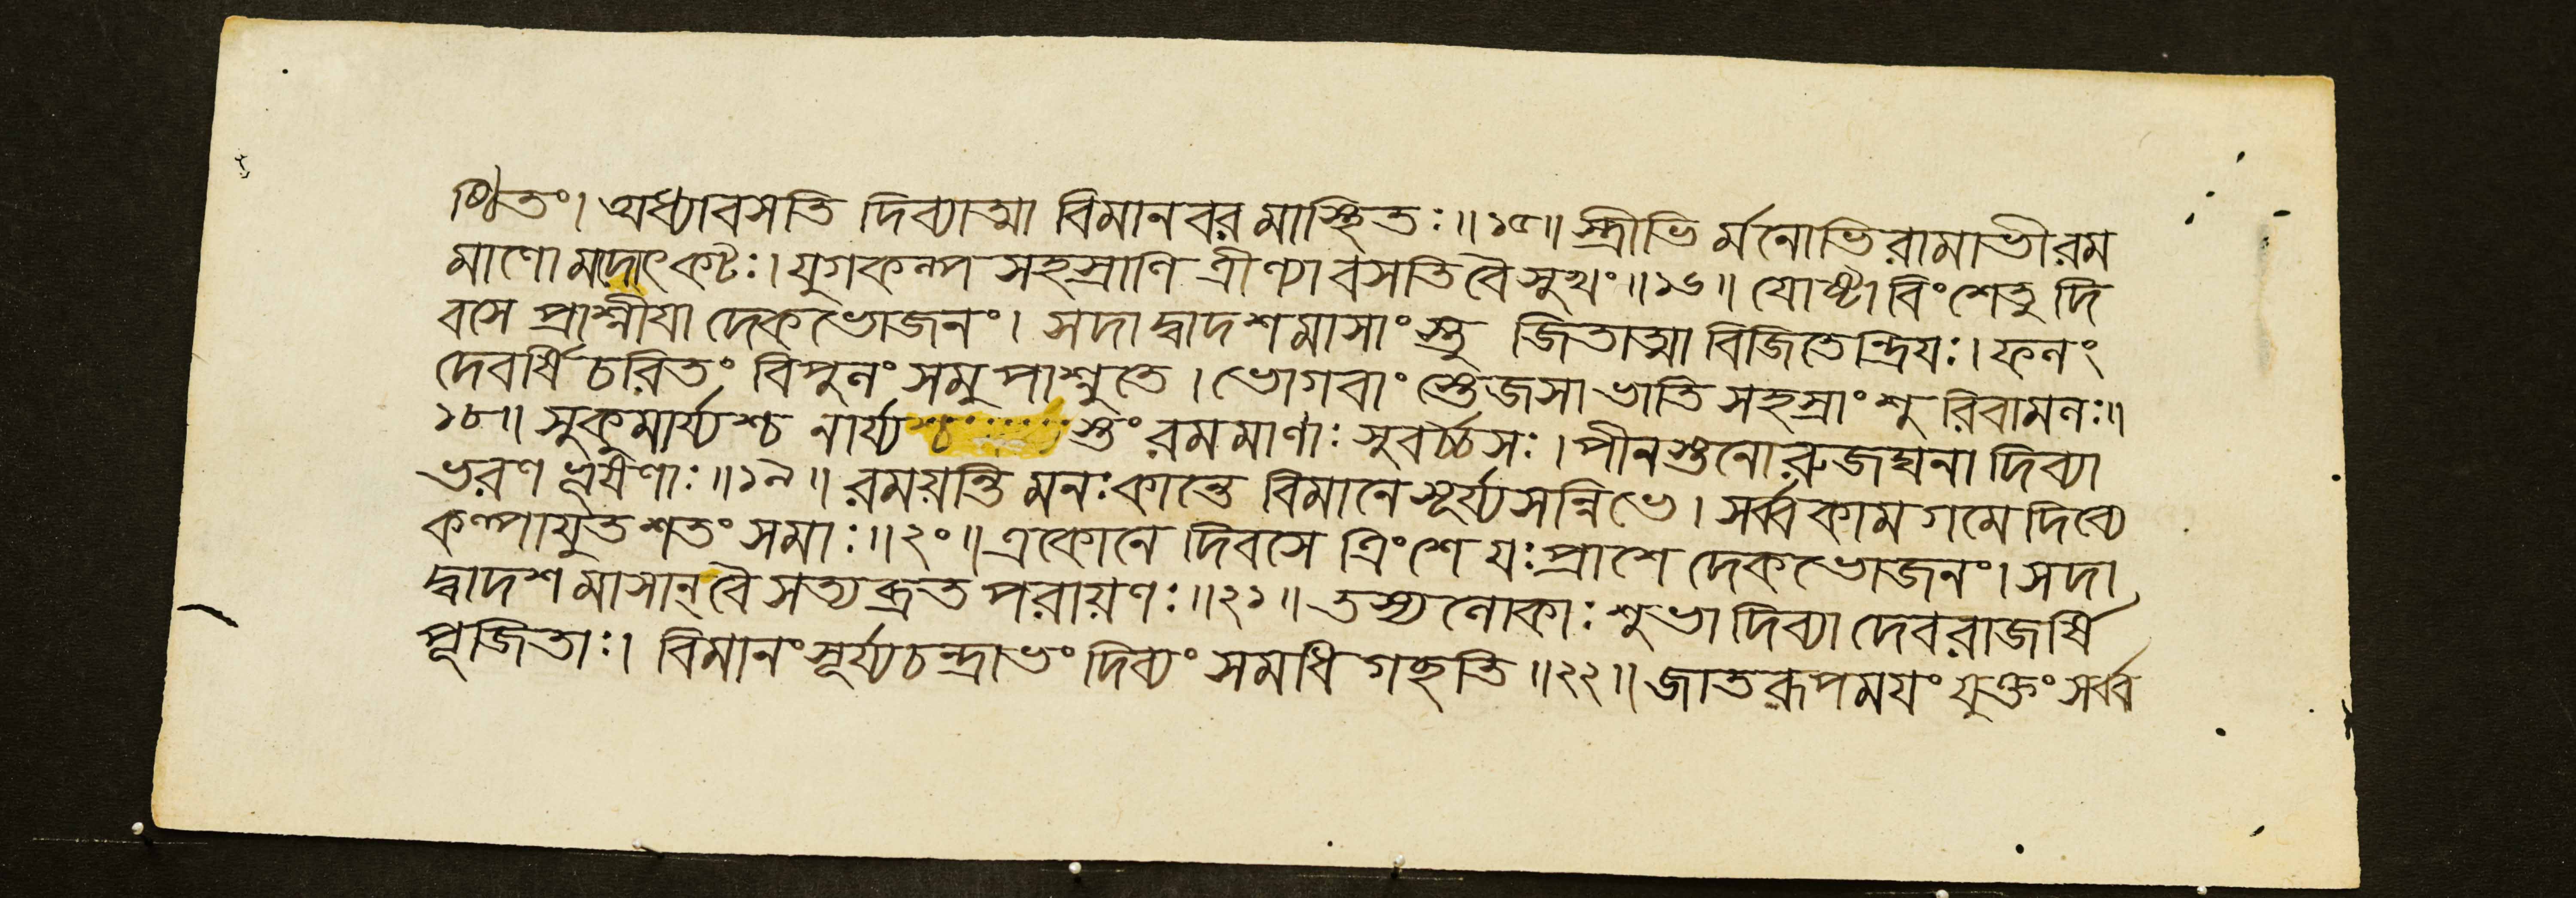 ষ্ঠিতং। অধ্যাবসতি দিব্যাত্মা বিমানবরমাস্থিতঃ॥১৫॥ স্ত্রীভির্মনোভিরামাভীরম
মাণো মদোৎকটঃ। যুগকল্প সহস্রাণি ত্রীণ্যাবসতি বৈ সুখং॥১৬॥ যোষ্টাবিংশেতু দি
বসে প্রাশ্নীযা দেকভোজনং। সদা দ্বাদশমাসাংস্তু জিতাত্মা বিজিতেন্দ্রিযঃ। ফলং
দেবর্ষিচরিতং বিপুলং সমুপাশ্নুতে। ভোগবাংস্তেজসা ভাতি সহস্রাংশুরিবামলঃ॥
১৮॥ সুকুমার্য্যশ্চ নার্য্যশ্চ স্তং রমমাণাঃ সুবর্চ্চসঃ। পীনস্তনোরুজঘনা দিব্যা
ভরণ ভূষণাঃ॥১৯॥ রময়ন্তি মনঃকান্তে বিমানে সূর্য্যসন্নিভে। সর্ব্বকামগমে দিব্যে
কল্পাযুত শতং সমাঃ॥২০॥ একোনে দিবসে ত্রিংশে যঃ প্রাশে দেকভোজনং। সদা
দ্বাদশ মাসান্ বৈ সত্যব্রত পরায়ণঃ॥২১॥ তস্য লোকাঃ শুভা দিব্যা দেবরাজর্ষি
পূজিতাঃ। বিমানং সূর্য্যচন্দ্রাভং দিব্যং সমধিগচ্ছতি॥২২॥ জাতরূপময়ং যুক্তং সর্ব্ব